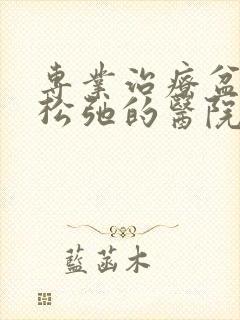 專業治療盆
松弛的醫院
藍菡木